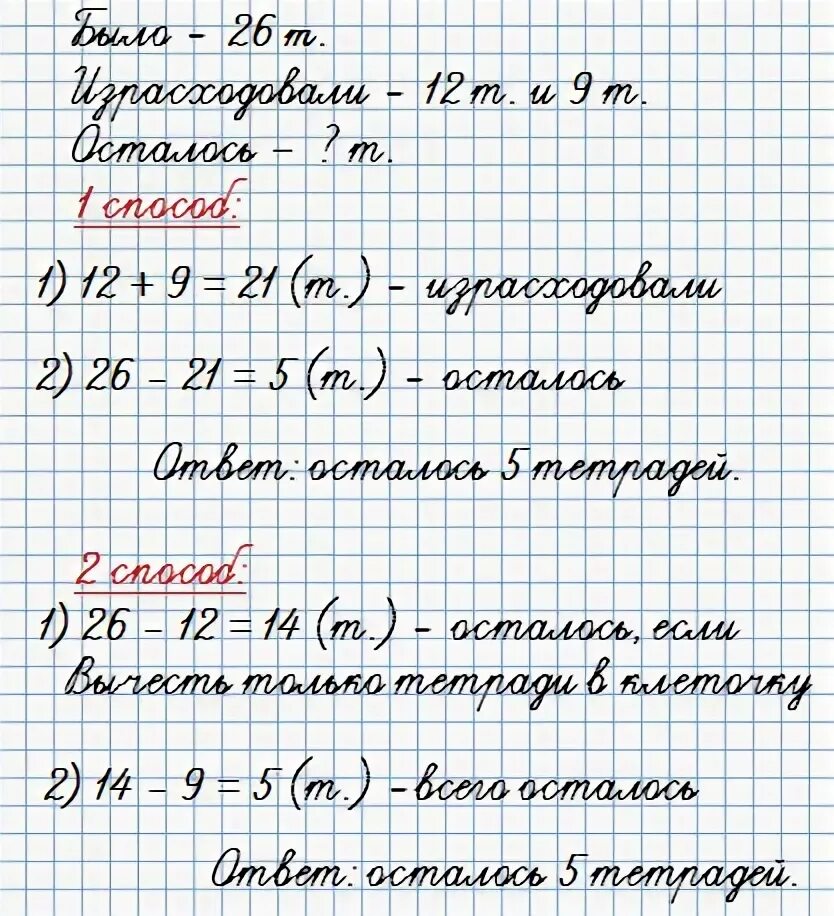 Было - 26 т.
Израсходовали - 12 т. и 9 т.
Осталось - ? т.
1 способ:
1) 12 + 9 = 21 (т.) - израсходовали
2) 26 - 21 = 5 (т.) - осталось
Ответ: осталось 5 тетрадей.
2 способ:
1) 26 - 12 = 14 (т.) - осталось, если
Вычесть только тетради в клеточку
2) 14 - 9 = 5 (т.) - всего осталось
Ответ: осталось 5 тетрадей.